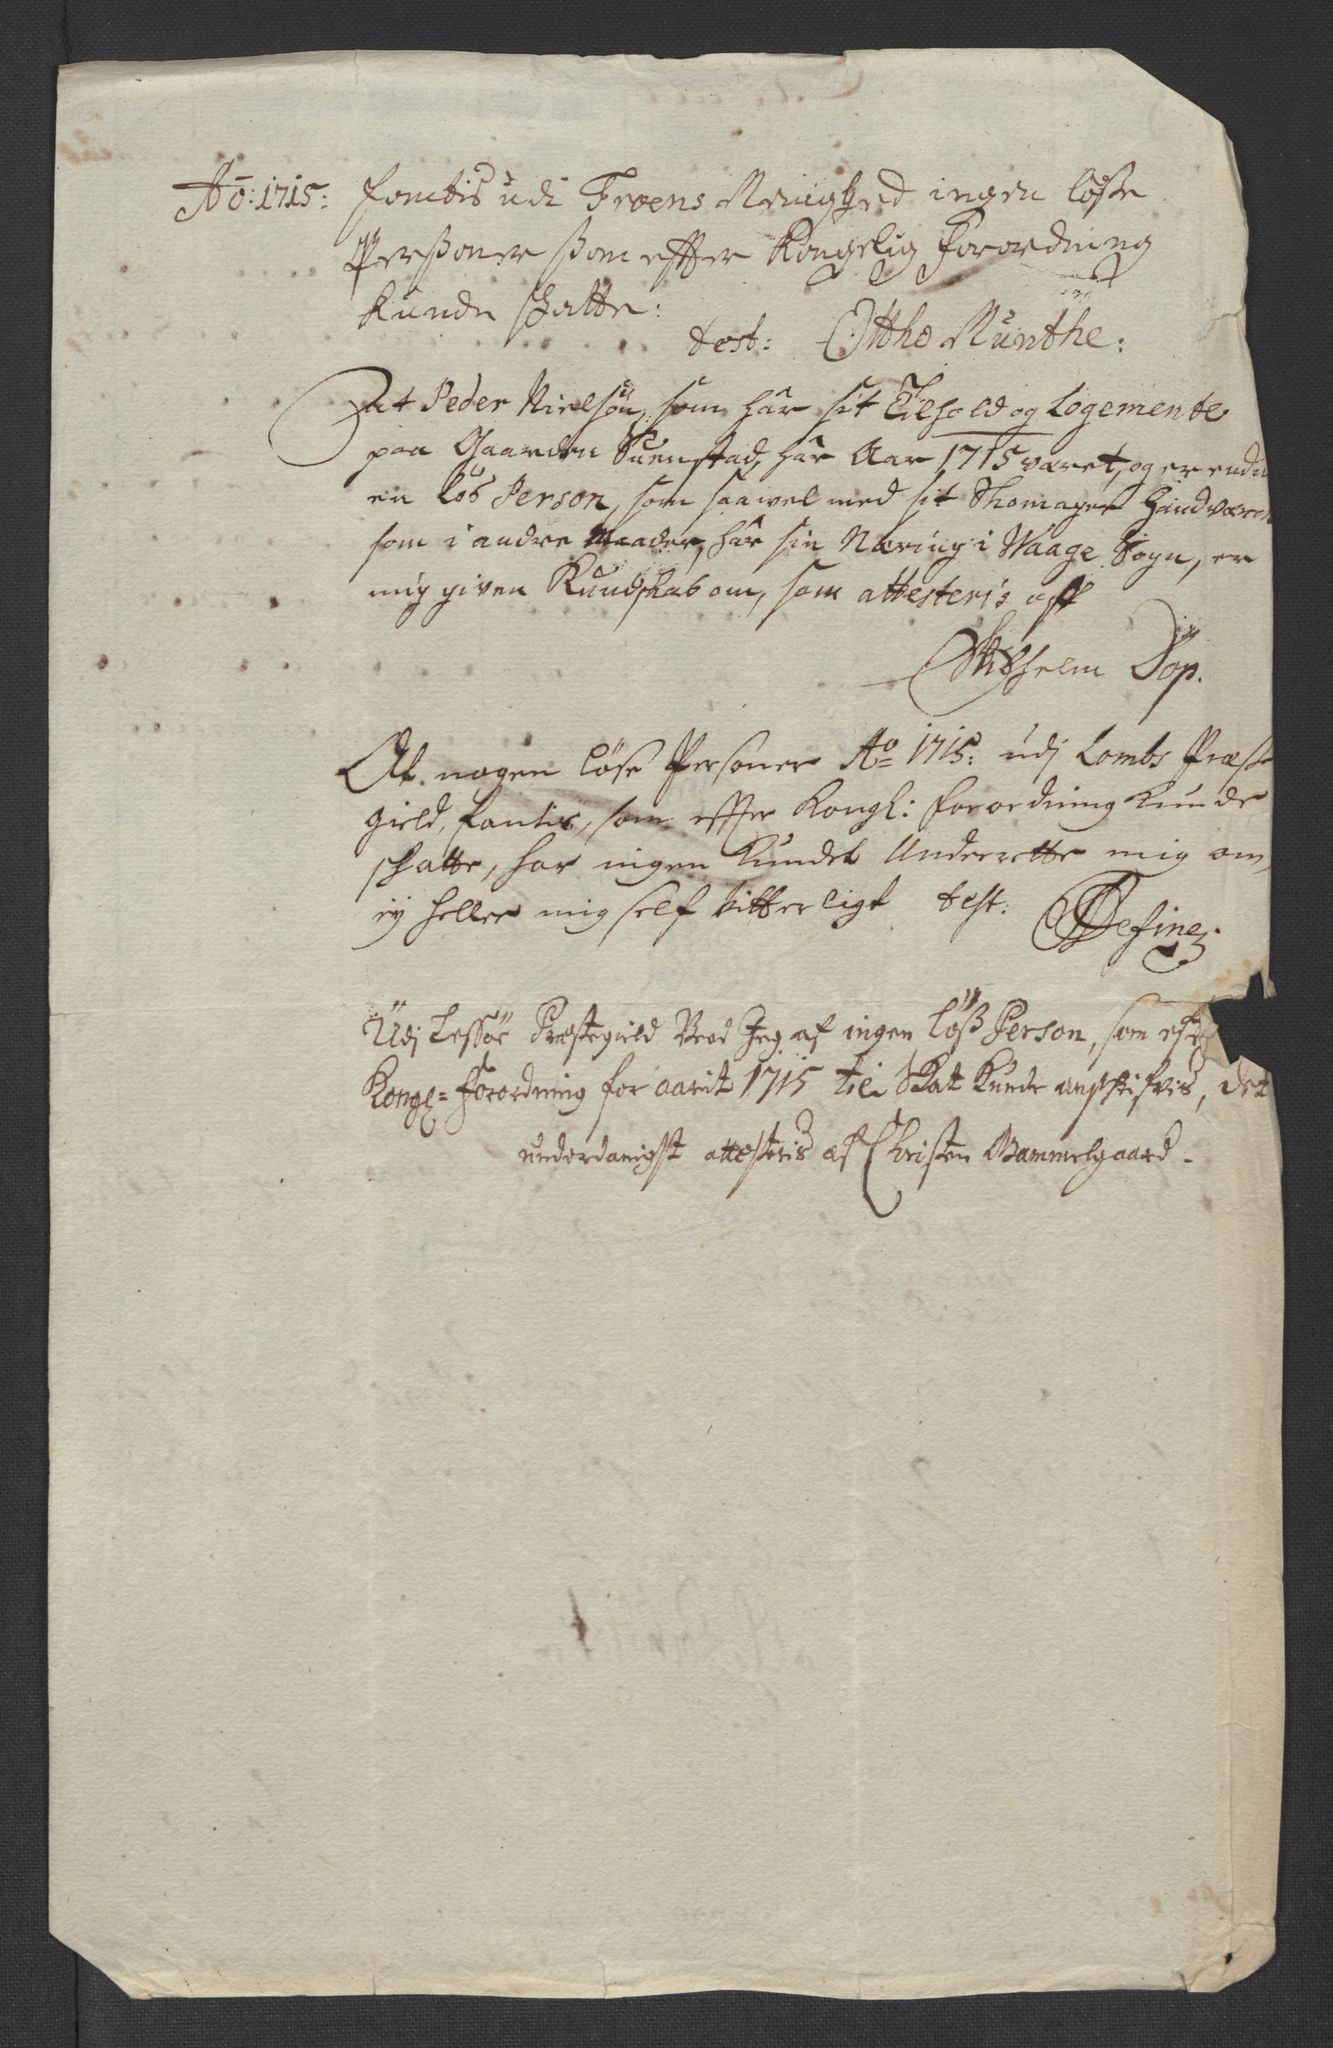 Aō: 1715: fantis udi Froens Menighed ingen løsse
Persßoner ßom effter Kongelig Forordning
kunde skatte:
test: Ottho Munthe:
At Peder Nielsøn, som hâr sit Tilhold og Logemente
paa Gaarden Suenstad, hâr Aar 1715 været, og er endnu
en løs Person, som saavel med sit Skomager Handværck
som i andre Maader, hâr sin Næring i Waage Sogn, er
mig given Kundskab om, som attesteris aff
Wilhelm Dop.
At nogen løse Personer Aō 1715: udj Lombs Præste
gield, fantis, som effter Kongl: Forordning kunde
skatte, har ingen kundet Underrette mig om,
ej heller mig self vitterligt test:
Define
Udj Lessøe Præstegield veed Jeg af ingen løss Person, som efter
Kongl= Forordning for aarit 1715 til Skat kunde anskrifvis, det
underdanigst attesteris af Christen Bammelgaard.